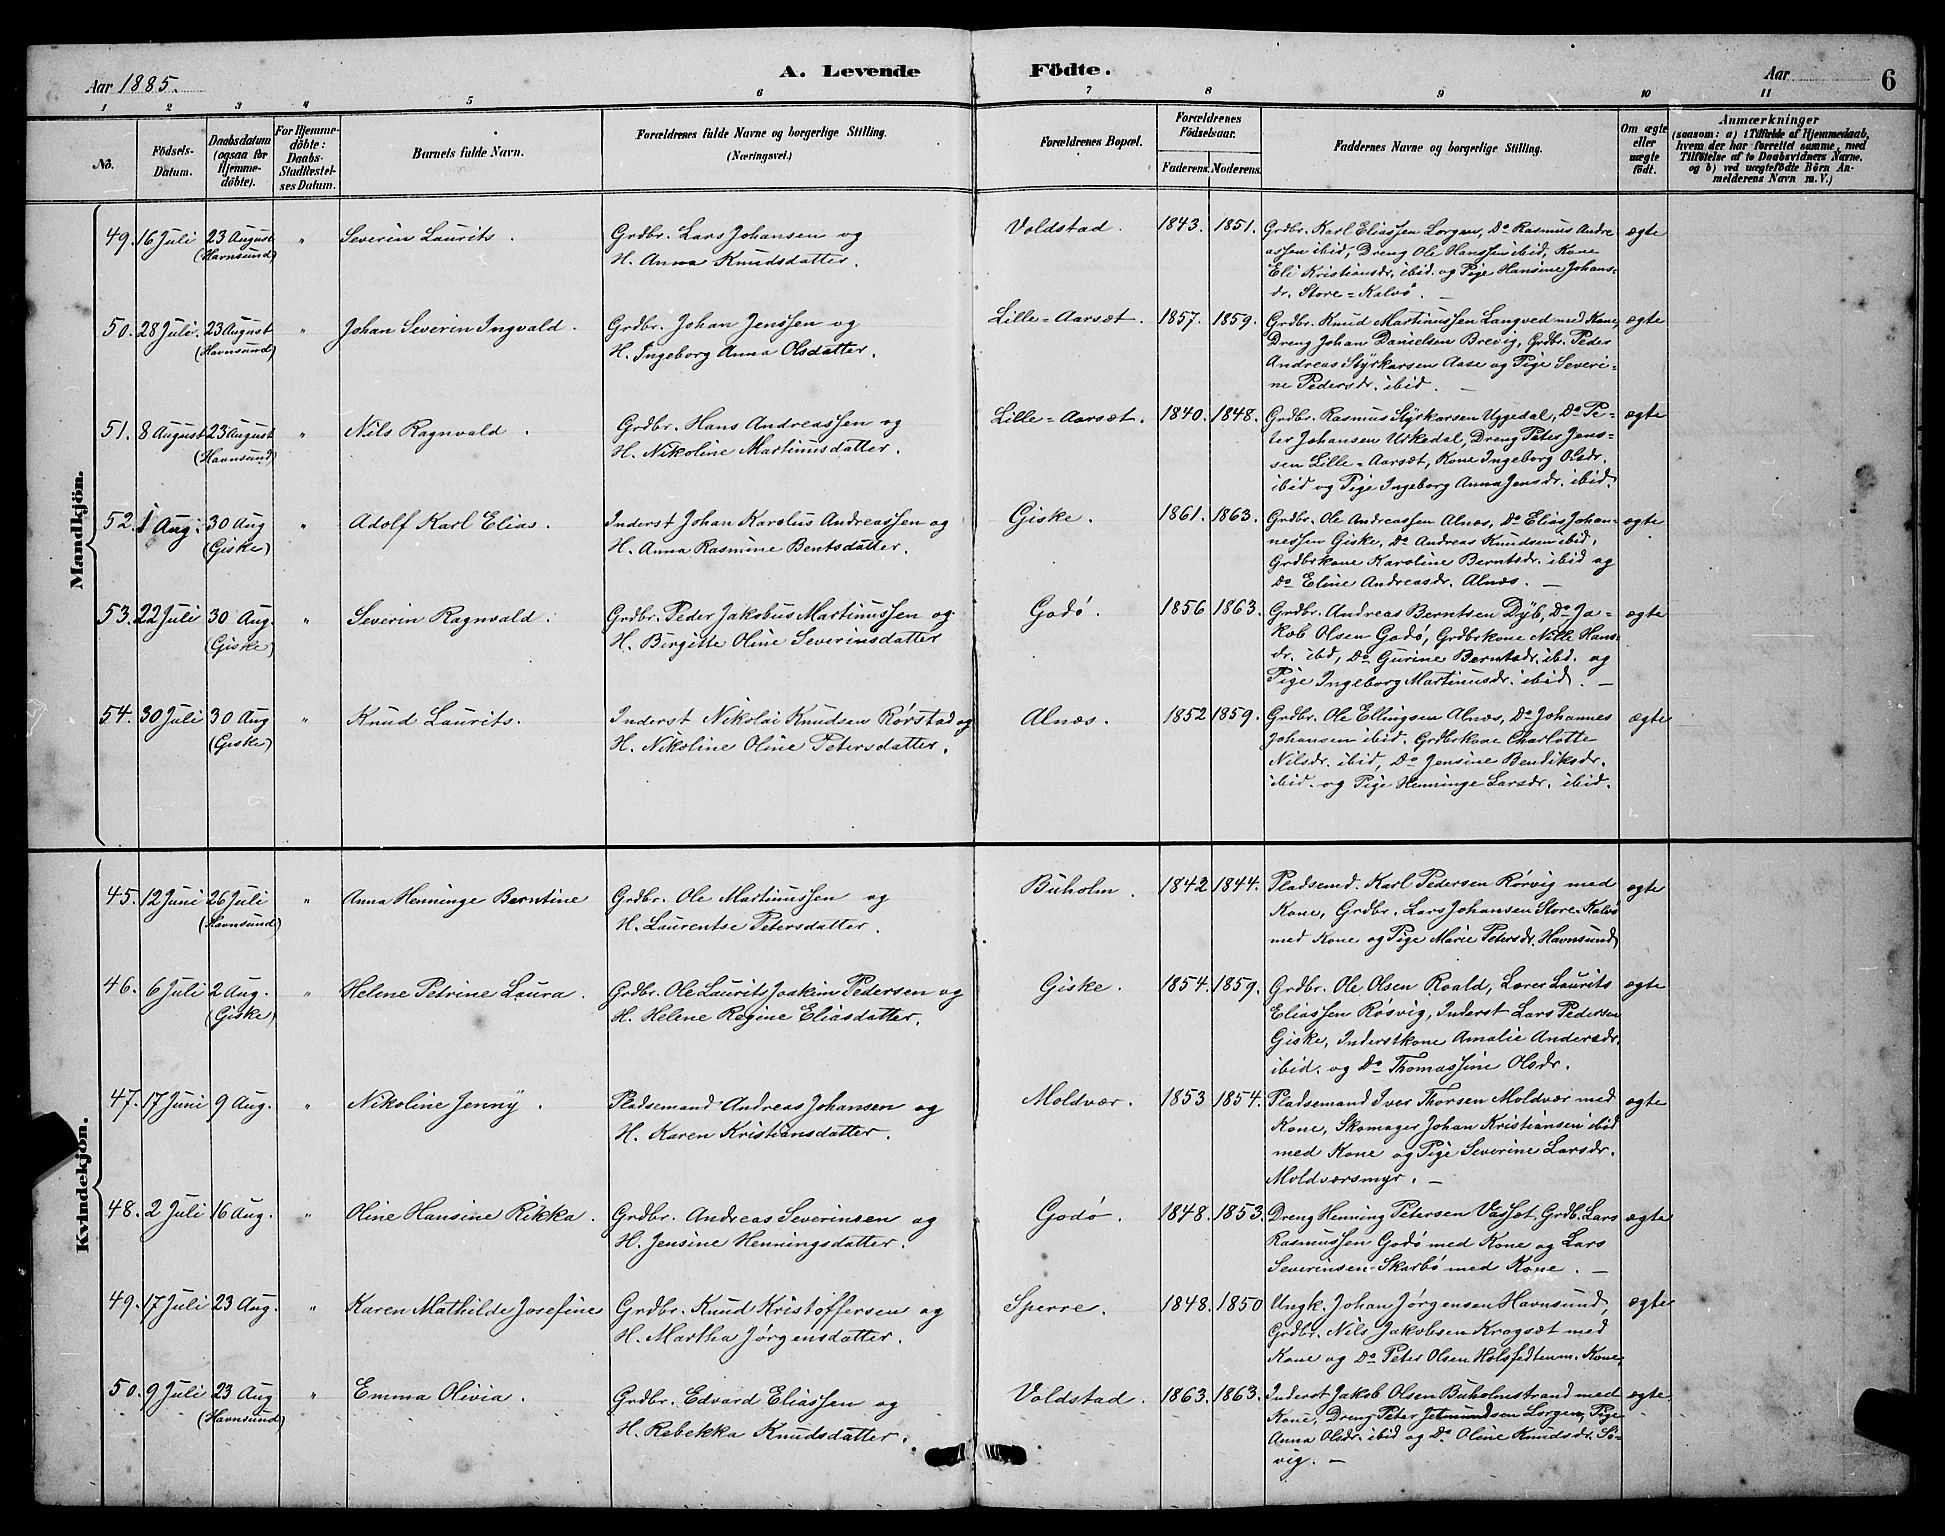 Aar 1885. A. Levende Födte. Aar 6
1 2 3 4 5 6 7 8 9 10 11
No.
Födsels-
Datum.
Daabsdatum
(ogsaa for
Hjemme-
döbte).
For Hjemme-
döbte:
Daabs-
Stadfæstel-
ses Datum.
Barnets fulde Navn.
Forældrenes fulde Navne og borgerlige Stilling.
(Næringsvei.)
Forældrenes Bopæl.
Forældrenes
Födselsaar.
Faderens. Moderens.
Faddernes Navne og borgerlige Stilling.
Om ægte
eller
uægte
födt.
Anmærkninger
(saasom: a) i Tilfælde af Hjemmedaab,
hvem der har forrettet samme, med
Tilföielse af to Daabsvidners Navne.
og b) ved uægtefödte Börn An-
melderens Navn m. V.)
Mandkjön.
49. 16 Juli 23 August " Severin Laurits. Grdbr. Lars Johansen og Voldstad. 1843. 1851. Grdbr. Karl Eliassen Lorgen, Do Rasmus Andre- ægte
(Havnsund) H. Anna Knudsdatter. assen ibid, Dreng Ole Hanssen ibid, Kone
Eli Kristiansdr. ibid. og Pige Hansine Johans-
dr. Store-Kalvø. —
50. 28 Juli. 23 August " Johan Severin Ingvald. Grdbr. Johan Jenssen og Lille-Aarsæt. 1857. 1859. Grdbr. Knud Martinussen Langved med Kone, ægte
(Havnsund) H. Ingeborg Anna Olsdatter. Dreng Johan Danielsen Brevig, Grdbr. Peder
Andreas Styrkarsen Aase og Pige Severi-
ne Pedersdr. ibid. —
51. 8 August 23 August " Nils Ragnvald. Grdbr. Hans Andreassen og Lille-Aarsæt. 1840. 1848. Grdbr. Rasmus Styrkarsen Uggedal, Do Pe- ægte
(Havnsund) H. Nikoline Martinusdatter. ter Johansen Urkedal, Dreng Peter Jens-
sen Lille-Aarsæt, Kone Ingeborg Olsdr.
ibid og Pige Ingeborg Anna Jensdr. ibid.
52. 1 Aug. 30 Aug " Adolf Karl Elias. Inderst Johan Karolus Andreassen og Giske. 1861. 1863. Grdbr. Ole Andreassen Alnæs, Do Elias Johan- ægte
(Giske) H. Anna Rasmine Bentsdatter. nessen Giske, Do Andreas Knudsen ibid,
Grdbrkone Karoline Berntsdr. ibid og
Do Eline Andreasdr. Alnæs. —
53. 22 Juli 30 Aug. " Severin Ragnvald. Grdbr. Peder Jakobus Martinussen og Godø. 1856 1863. Grdbr. Andreas Berntsen Dyb, Do Ja- ægte
(Giske) H. Birgitte Oline Severinsdatter kob Olsen Godø, Grdbrkone Nille Hans-
dr. ibid, Do Gurine Berntsdr. ibid. og
Pige Ingeborg Martinusdr. ibid. —
54. 30 Juli 30 Aug " Knud Laurits. Inderst Nikolai Knudsen Rørstad og Alnæs. 1852 1859. Grdbr. Ole Ellingsen Alnæs, Do Johannes ægte
(Giske) H. Nikoline Oline Petersdatter. Johansen ibid. Grdbrkone Charlotte
Nilsdr. ibid, Do Jensine Bendiksdr.
ibid. og Pige Henninge Larsdr. ibid.
Kvindekjön.
45. 12 Juni 26 Juli " Anna Henninge Berntine Grdbr. Ole Martinussen og Buholm. 1842 1844. Pladsemd. Karl Pedersen Rørvig med ægte
(Havnsund) H. Laurentse Petersdatter. Kone, Grdbr. Lars Johansen Store-Kalvø
med Kone og Pige Marie Petersdr. Havnsund
46. 6 Juli 2 Aug. " Helene Petrine Laura. Grdbr. Ole Laurits Joakim Pedersen og Giske. 1854. 1859. Grdbr. Ole Olsen Roald, Lærer Laurits ægte
(Giske) H. Helene Regine Eliasdatter. Eliassen Røsvig, Inderst Lars Pedersen
Giske, Inderstkone Amalie Andersdr.
ibid. og Do Thomassine Olsdr.
47. 17 Juni 9 Aug. " Nikoline Jenny. Pladsemand Andreas Johansen og Moldvær. 1853 1854. Pladsemand Iver Thorsen Moldvær med ægte
H. Karen Kristiansdatter. Kone, Skomager Johan Kristiansen ibid
med Kone og Pige Severine Larsdr.
Moldværsmyr. —
48. 2 Juli 16 Aug. " Oline Hansine Rikka. Grdbr. Andreas Severinsen og Godø. 1848. 1853. Dreng Henning Petersen Vasset, Grdb. Lars ægte
H. Jensine Henningsdatter. Rasmussen Godø med Kone og Lars
Severinsen Skarbø med Kone. —
49. 17 Juli 23 Aug. " Karen Mathilde Josefine Grdbr. Knud Kristoffersen og Sperre. 1848. 1850 Ungk. Johan Jørgensen Havnsund, ægte
H. Martha Jørgensdatter. Grdbr. Nils Jakobsen Krogsæt med
Kone og Do Peter Olsen m. Kone.
50. 9 Juli 23 Aug " Emma Olivia. Grdbr. Edvard Eliassen og Voldstad. 1863. 1863. Inderst Jakob Olsen Buholmstrand med ægte
(Havnsund) H. Rebekka Knudsdatter. Kone, Dreng Peter Jetmundsen Lorgen, Pige
Anna Olsdr. ibid og Do Oline Knudsdr. Sø-
vig. —